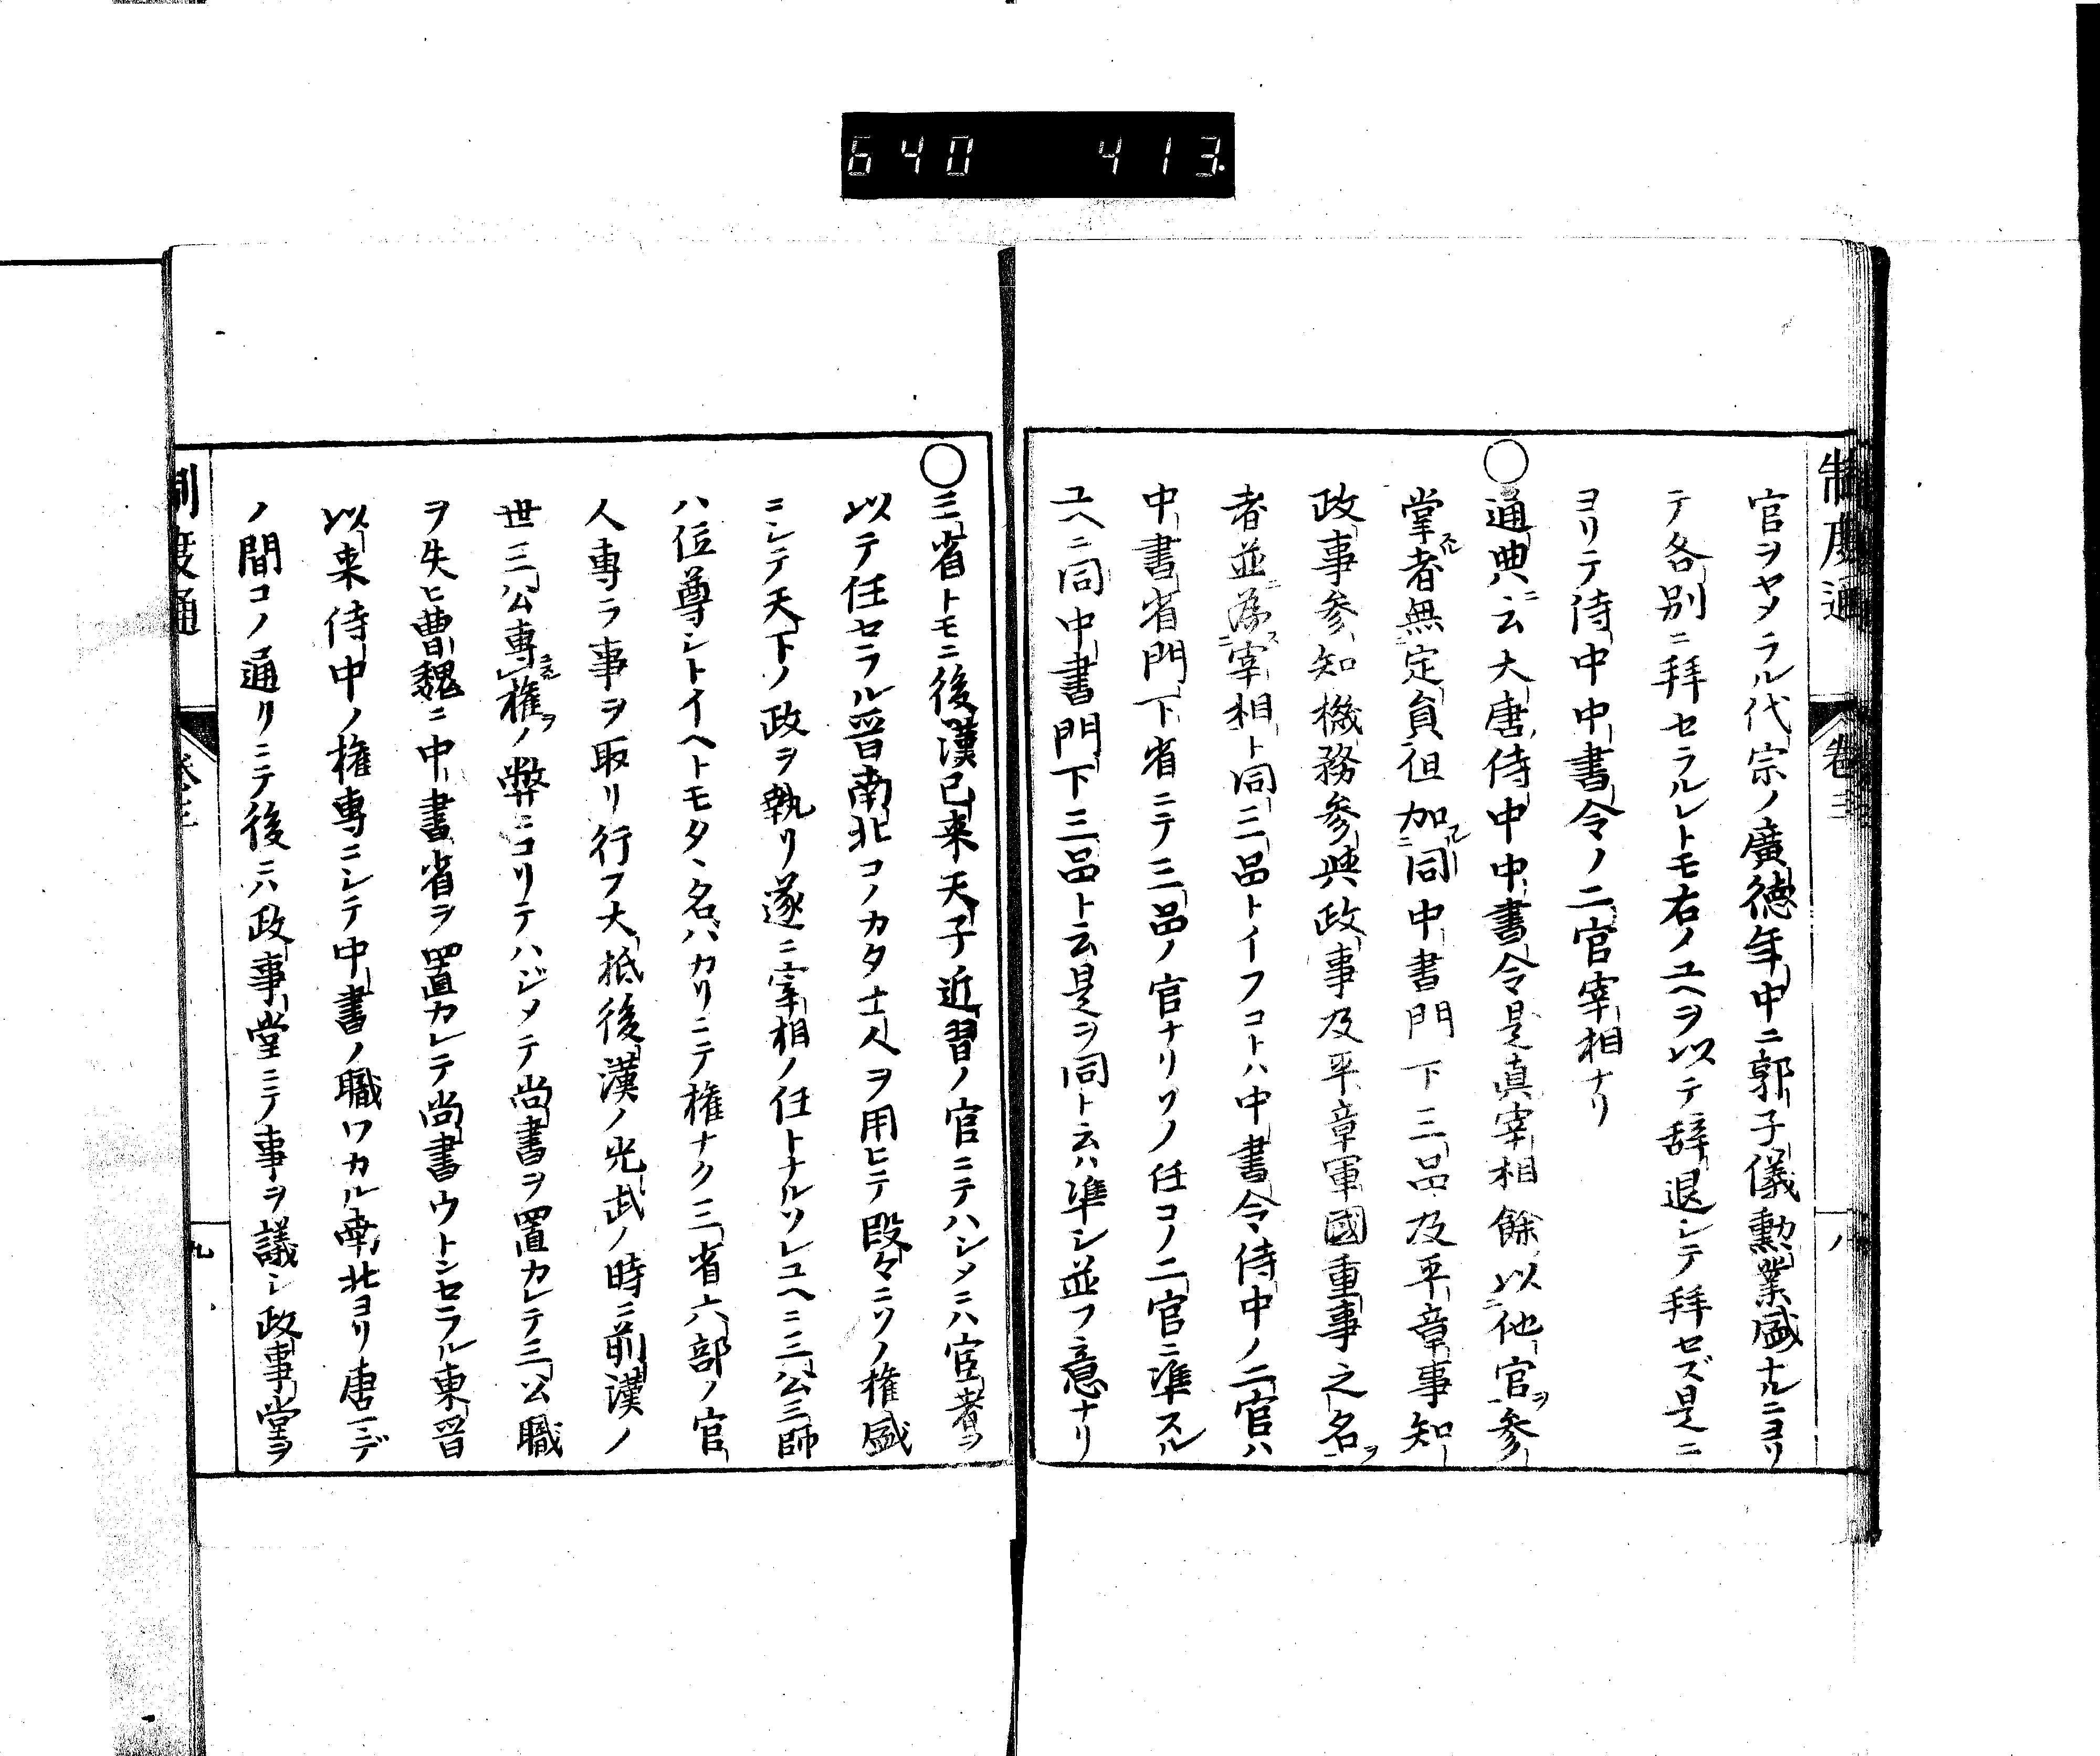 640 413.
制度通 卷三 八
官ヲヤメラル代宗ノ廣徳年中ニ郭子儀勲業盛ナルニヨリ
テ各別ニ拜セラルレトモ右ノユヘヲ以テ辞退シテ拜セズ是ニ
ヨリテ侍中中書令ノ二官宰相ナリ
○通典ニ云大唐侍中中書令是真宰相餘以他官ヲ参
掌者無定員但加同中書門下三品及平章事知
政事参知機務参與政事及平章軍國重事之名ヲ
者並為宰相ト同三品トイフコトハ中書令侍中ノ二官ハ
中書省門下省ニテ三品ノ官ナリソノ任コノ二官ニ準スル
ユヘニ同中書門下三品ト云是ヲ同ト云ハ準シ並フ意ナリ
○三省トモニ後漢已来天子近習ノ官ニテハシメニハ宦者ヲ
以テ任セラル晋南北コノカタ士人ヲ用ヒテ段々ニソノ権盛
ニシテ天下ノ政ヲ執リ遂ニ宰相ノ任トナルソレユヘニ三公三師
ハ位尊シトイヘトモタヽ名バカリニテ権ナク三省六部ノ官
人専ラ事ヲ取リ行フ大抵後漢ノ光武ノ時ニ前漢ノ
世三公専権ヲノ弊ニコリテハジメテ尚書ヲ置カレテ三公職
ヲ失ヒ曹魏ニ中書省ヲ置カレテ尚書ウトンセラル東晋
以来侍中ノ権専ニシテ中書ノ職ワカル南北ヨリ唐マデ
ノ間コノ通リニテ後ニハ政事堂ニテ事ヲ議シ政事堂ヲ
制度通 卷三 九